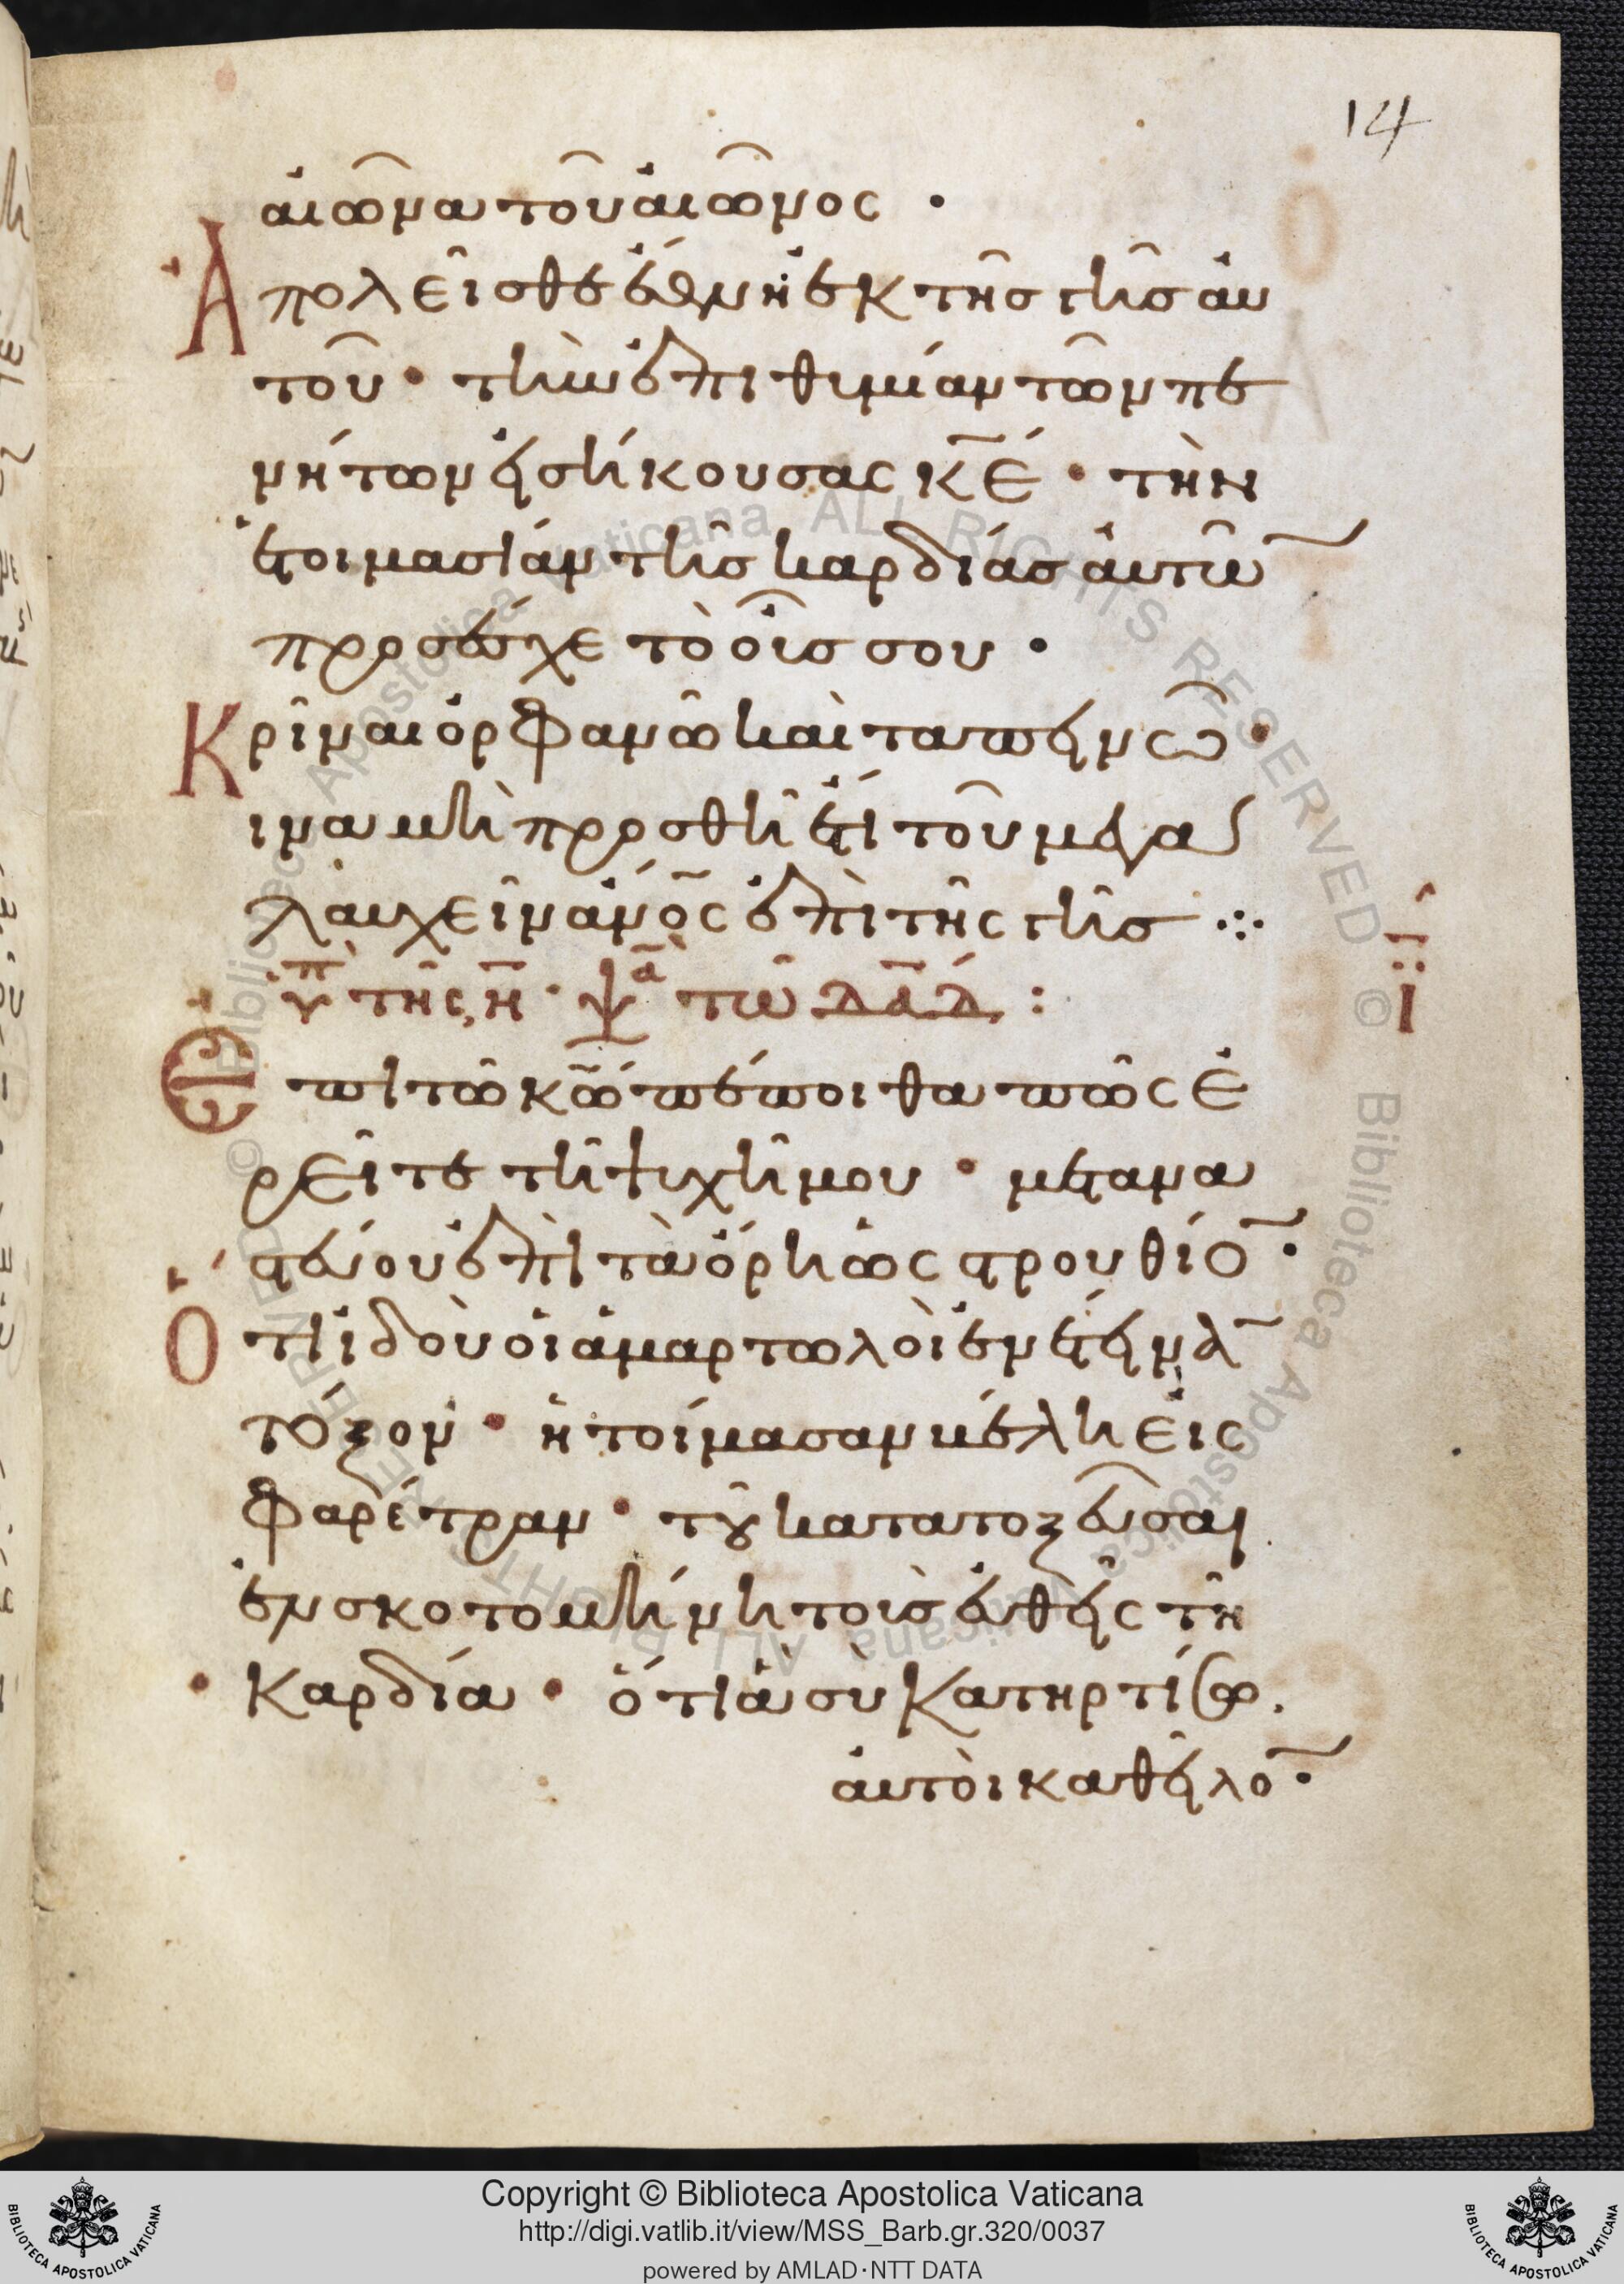 14
αἰῶνα τοῦ αἰῶνος ·
Ἀπολεῖσθε ἔθνη ἐκ τῆς γῆς αὐ
τοῦ · τὴν ἐπιθυμίαν τῶν πε
νήτων εἰσήκουσας κ̅ε̅ · τὴν
ἑτοιμασίαν τῆς καρδίας αὐτῶ̅
προσέσχε τὸ οὖς σου ·
Κρῖναι ὀρφανῶ καὶ ταπεινῶ ·
ἵνα μὴ προσθῆ ἔτι τοῦ μεγα
λαυχεῖν ἄν̅ο̅ς ἐπὶ τῆς γῆς ⁘
ὑπ τῆς, η̅ · ψα τῶ δα̅δ̅ :
ι̅
Ἐπὶ τῶ κ̅ω̅ πέποιθα πῶς ἐ
ρεῖτε τῆ ψυχῆ μου · μετανα
στεύου ἐπὶ τὰ ὄρη ὡς στρουθίο̅ ·
Ὅτι ἰδοὺ οἱ ἁμαρτωλοὶ ἐνέτειναν
τόξον · ἡτοίμασαν βέλη εἰς
φαρέτραν · τοῦ κατατοξεῦσαι
ἐν σκοτομήνη τοὺς εὐθεῖς τῆ
καρδία · ὅτι ἃ σὺ κατηρτίσω.
αὐτοὶ καθεῖλο̅ ·
Copyright © Biblioteca Apostolica Vaticana
http://digi.vatlib.it/view/MSS_Barb.gr.320/0037
powered by AMLAD·NTT DATA